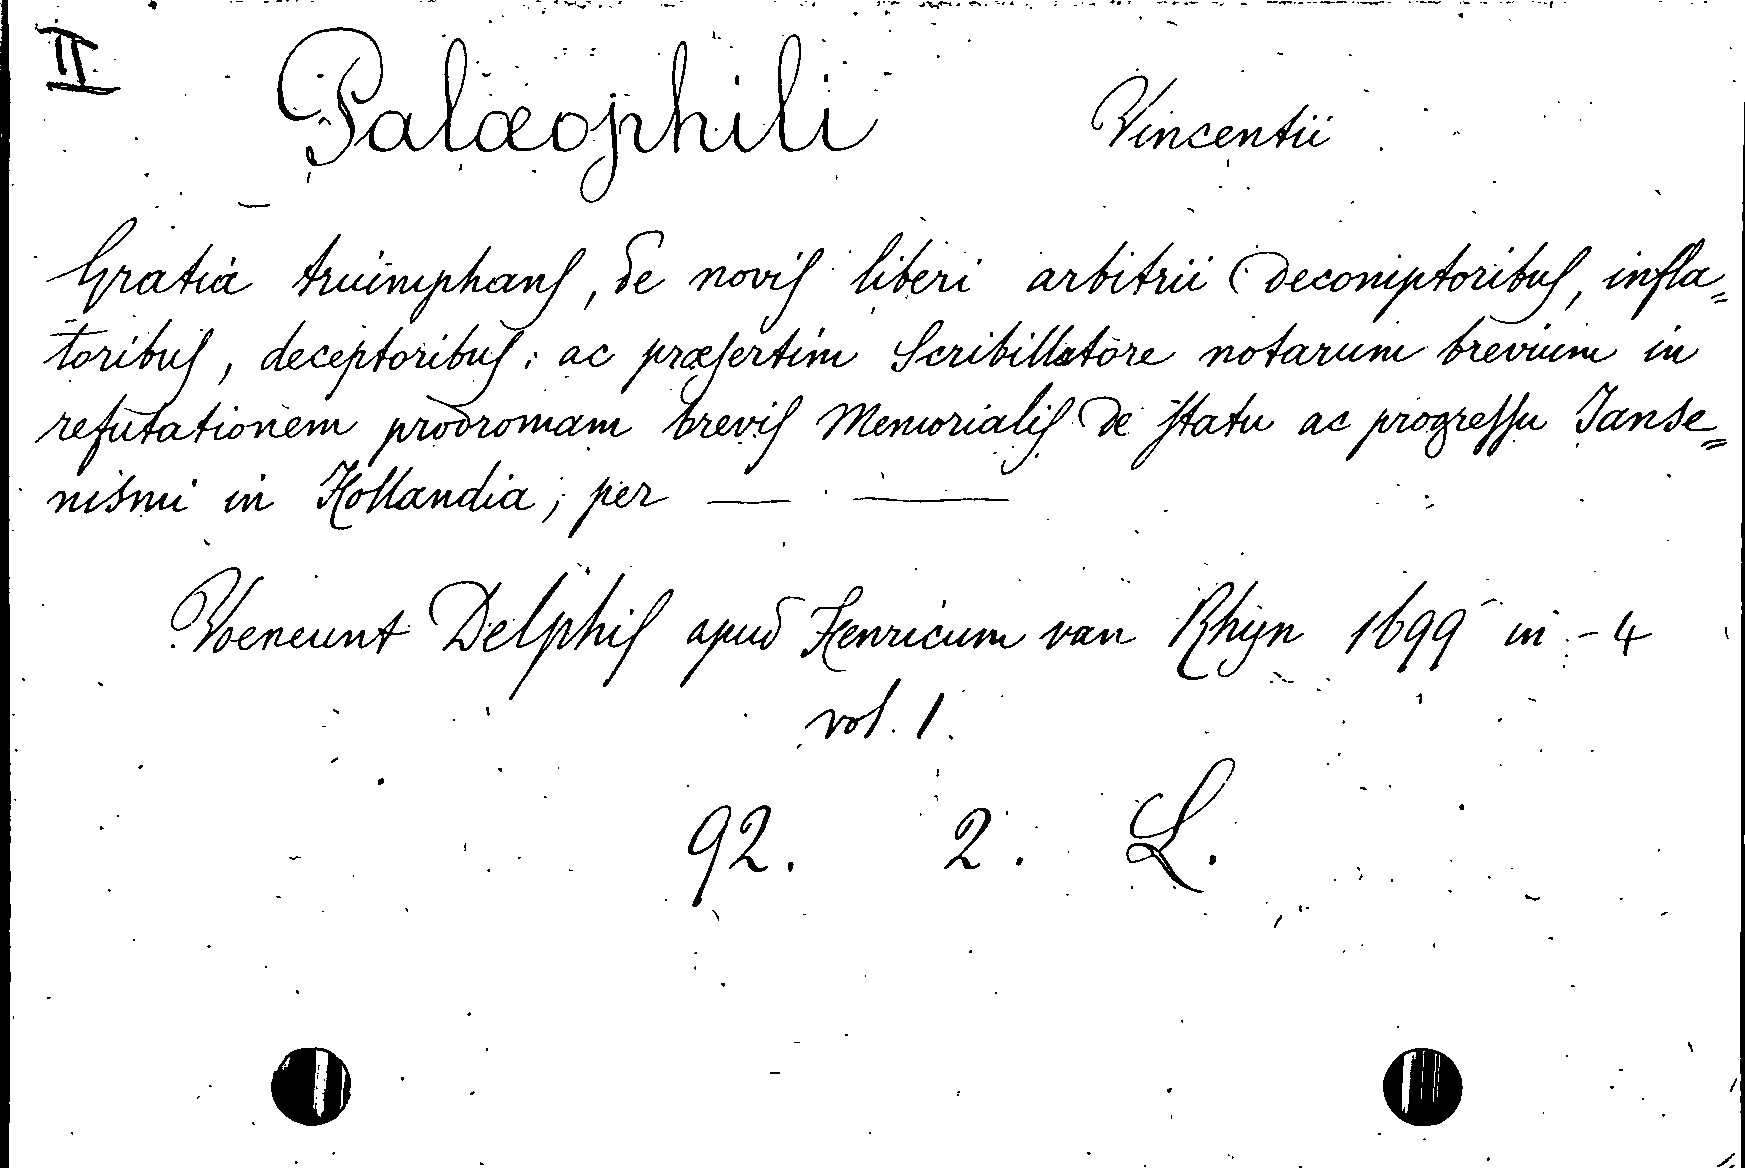 II
Palæophili Vincentii
Gratia truimphans, de novis liberi arbitrii decomptoribus, infla=
toribus, deceptoribus: ac præsertim Scribillatore notarum brevium in
refutationem prodromam brevis Memorialis de statu ac progressu Janse=
nismi in Hollandia; per — —
Voeneunt Delphis apud Henricum van Rhijn 1699 in-4
vol. 1.
92. 2. L.